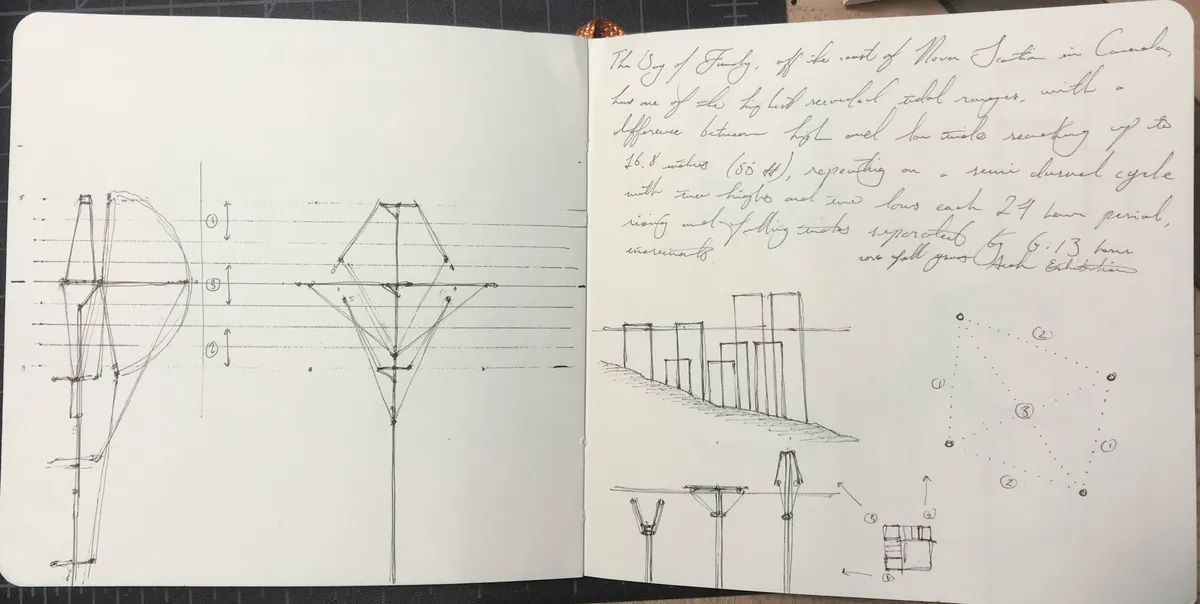 The Bay of Fundy, off the coast of Nova Scotia in Canada,
has one of the highest recorded tidal ranges, with a
difference between high and low tide reaching up to
16.8 metres (55 ft), repeating on a semi diurnal cycle
with two highs and two lows each 24 hour period,
rising and falling tides separated by 6.13 hour
increments.
Arch Exhibition
1
3
2
2
1
3
1
2
3
2